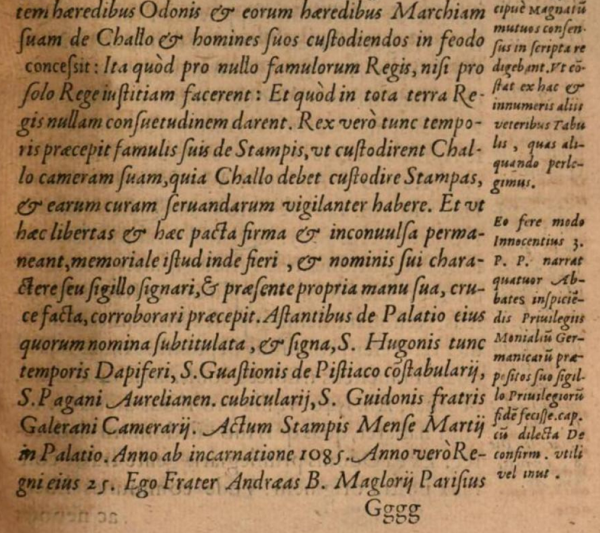 tem hæredibus Odonis & eorum hæredibus Marchiam
ſuam de Challo & homines ſuos cuſtodiendos in feodo
conceſsit: Ita quòd pro nullo famulorum Regis, niſi pro
ſolo Rege iuſtitiam facerent: Et quòd in tota terra Re-
gis nullam conſuetudinem darent. Rex verò tunc tempo-
ris præcepit famulis ſuis de Stampis, vt cuſtodirent Chal-
lo cameram ſuam, quia Challo debet cuſtodire Stampas,
& earum curam ſeruandarum vigilanter habere. Et vt
hæc libertas & hæc pacta firma & inconuulſa perma-
neant, memoriale iſtud inde fieri, & nominis ſui chara-
ctere ſeu ſigillo ſignari, & præſente propria manu ſua, cru-
ce facta, corroborari præcepit. Aſtantibus de Palatio eius
quorum nomina ſubtitulata, & ſigna, S. Hugonis tunc
temporis Dapiferi, S. Guaſtionis de Piſtiaco cõſtabularij,
S. Pagani Aurelianen. cubicularij, S. Guidonis fratris
Galerani Camerarij. Actum Stampis Menſe Martij
in Palatio. Anno ab incarnatione 1085. Anno verò Re-
gni eius 25. Ego Frater Andræas B. Maglorij Pariſius
Gggg
cipuè Magnatũ
mutuos conſen-
ſus in ſcripta re
digebant. Vt cõ-
ſtat ex hac &
innumeris aliis
veteribus Tabu
lis, quas ali-
quando perle-
gimus.
Eo fere modo
Innocentius 3.
P. P. narrat
quatuor Ab-
bates inſpiciẽ-
dis Priuilegiis
Monialiũ Ger-
manicarũ præ-
poſitos ſuo ſigil-
lo Priuilegiorũ
fidẽ feciſſe. cap.
cũ dilecta De
confirm. vtili
vel inut.